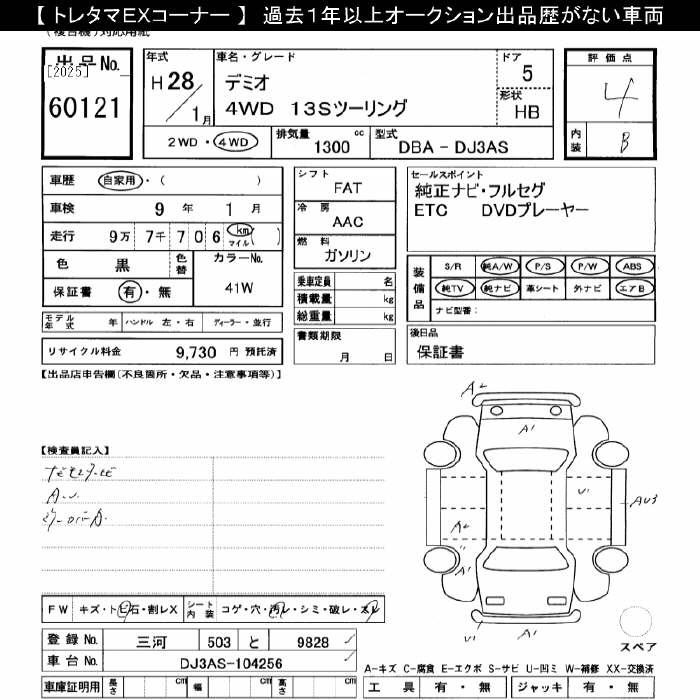 【 トレタマEXコーナー 】 過去1年以上オークション出品歴がない車両
出品No.
[2025]
60121
年式
H 28 / 1月
車名・グレード
デミオ
4WD 13Sツーリング
ドア
5
形状
HB
2WD ・ 4WD
排気量 1300 cc
型式 DBA - DJ3AS
評価点
4
内装 B
車歴 自家用・( )
車検 9 年 1 月
走行 9万 7千 7 0 6 km マイル ( )
色 黒
色替
カラーNo.
41W
保証書 有 ・ 無
モデル年式 年 ハンドル 左・右 ディーラー・並行
リサイクル料金 9,730 円 預託済
シフト
FAT
冷房
AAC
燃料
ガソリン
乗車定員 名
積載量 kg
総重量 kg
書類期限
月 日
セールスポイント
純正ナビ・フルセグ
ETC DVDプレーヤー
装備品
S/R 純A/W P/S P/W ABS
純TV 純ナビ 革シート 外ナビ エアB
ナビ型番:
後日品
保証書
【出品店申告欄(不良箇所・欠品・注意事項等)】
【検査員記入】
A.U.
A2
A1
U1
AU3
A2
A1
U1
FW キズ・トビ石・割レX
シート内装 コゲ・穴・汚レ・シミ・破レ・スレ
登録No. 三河 503 と 9828
車台No. DJ3AS-104256
スペア
A-キズ C-腐食 E-エクボ S-サビ U-凹ミ W-補修 XX-交換済
車庫証明用 長さ cm 幅 cm 高さ cm
工具 有・無 ジャッキ 有・無